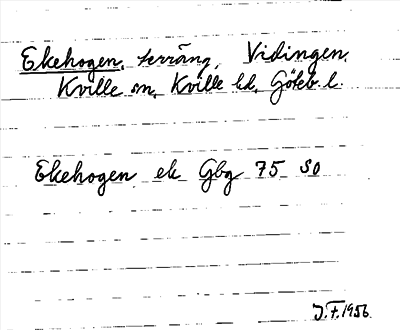 Ekehogen, terräng, Vidingen.
Kville sn, Kville hd, Göteb. l.
Ekehogen ek Gbg 75 SO
J.F. 1956.